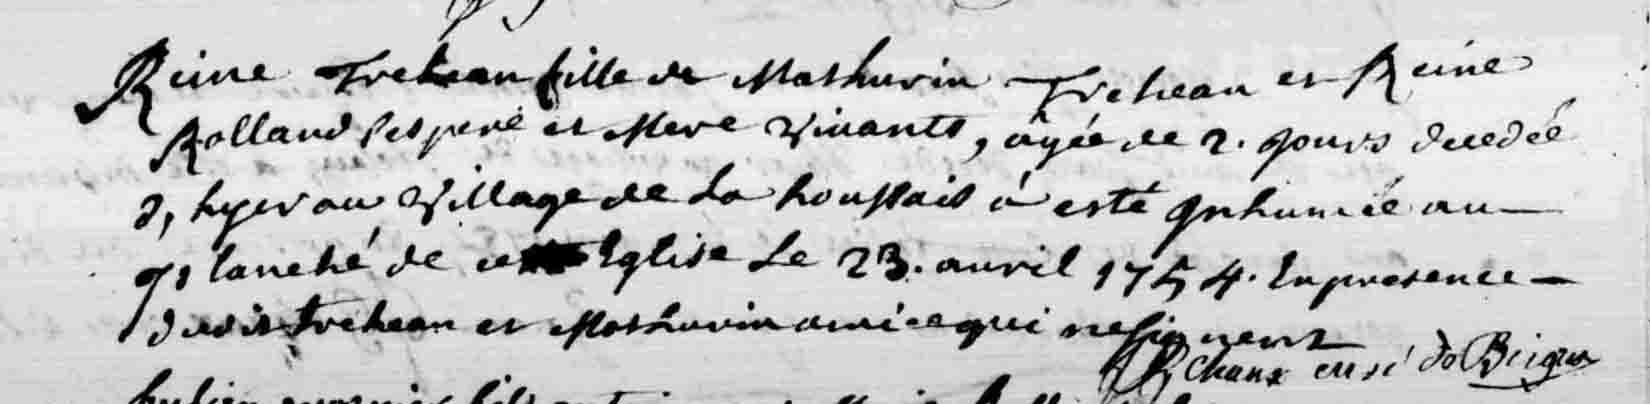 Reine Trehean fille de Mathurin Trehean et Reine
Rolland ses pere et Mere Vivants, âgée de 2. jours decedée
d, hyer au Village de La houssais á esté Inhumée au
planché de cette Eglise Le 23. avril 1754. En presence
dudit Trehean et Mathurin qui ne signent
curé de